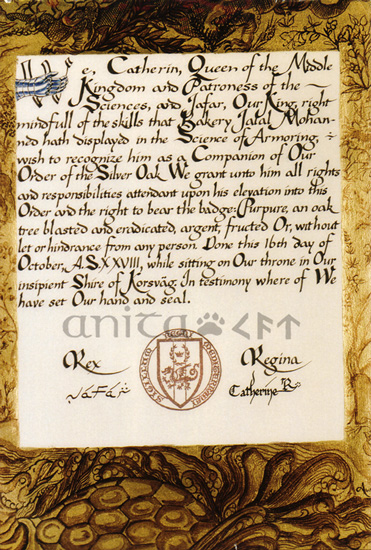 We, Catherin, Queen of the Middle
Kingdom and Patroness of the ~
Sciences, and Jafar, Our King, right
mindfull of the skills that Bakery Jalal Moham-
med hath displayed in the Science of Armoring, ~
wish to recognize him as a Companion of Our
Order of the Silver Oak. We grant unto him all rights
and responsibilities attendant upon his elevation into this
Order and the right to bear the badge: Purpure, an oak
tree blasted and eradicated, argent, fructed Or, without
let or hindrance from any person. Done this 16th day of
October, A.S. XXVIII, while sitting on Our throne in Our
insipient Shire of Korsvag. In testimony where of We
have set Our hand and seal.
anita
Rex Regina
Jafar Catherine R